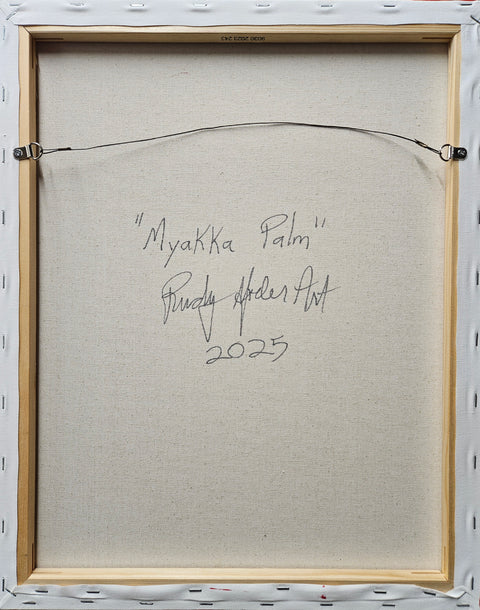 "Myakka Palm"
Rudy Art
2025